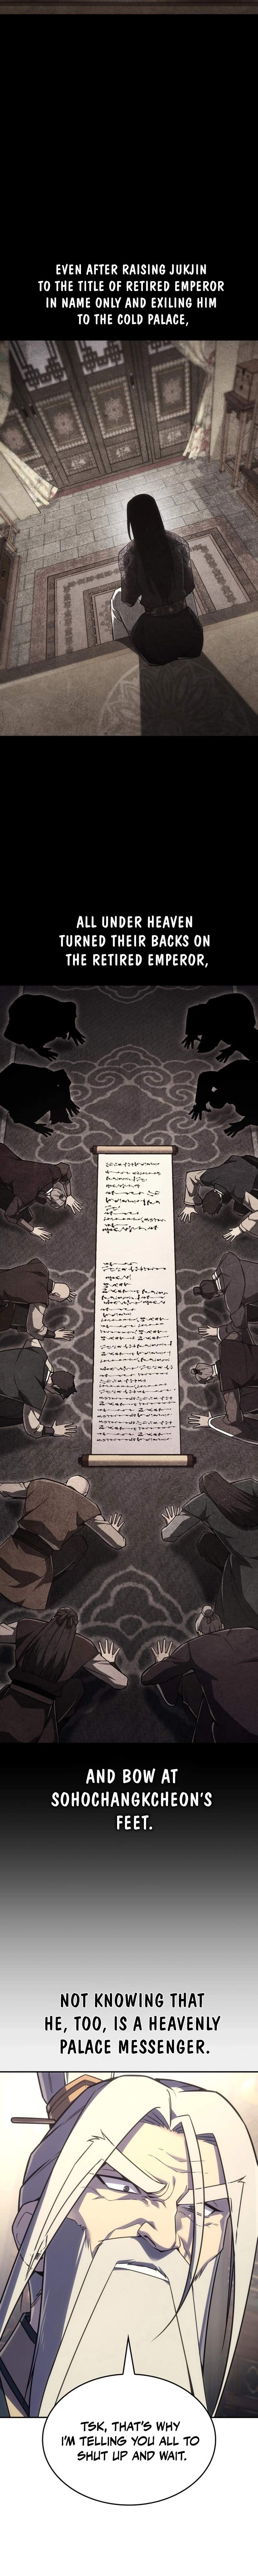 EVEN AFTER RAISING JUKJIN
TO THE TITLE OF RETIRED EMPEROR
IN NAME ONLY AND EXILING HIM
TO THE COLD PALACE,
ALL UNDER HEAVEN
TURNED THEIR BACKS ON
THE RETIRED EMPEROR,
AND BOW AT
SOHOCHANGKCHEON'S
FEET.
NOT KNOWING THAT
HE, TOO, IS A HEAVENLY
PALACE MESSENGER.
TSK, THAT'S WHY
I'M TELLING YOU ALL TO
SHUT UP AND WAIT.